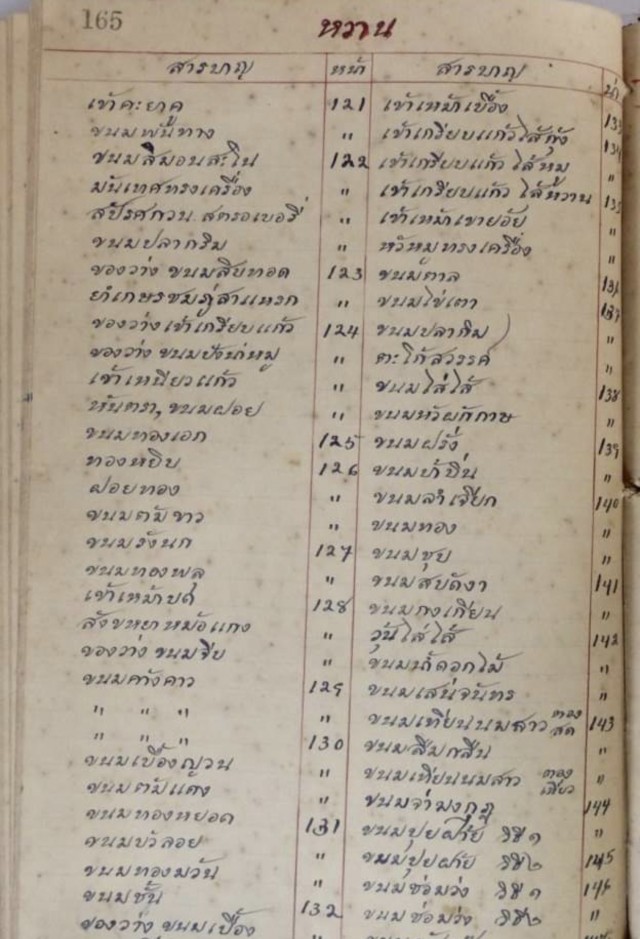 165
หวาน
สารบาญ หน้า
เข้าคะยาคู 121
ขนมพันทาง "
ขนมลิมอนสะโน 122
มันเทศทรงเครื่อง "
สปัรศกวน สตรอเบอรี่ "
ขนมปลากริม "
ของว่าง ขนมสิยทอด 123
ยำเกษรชมภู่สาแหรก "
ของว่าง เข้าเกรียบแก้ว 124
ของว่าง ขนมปังน่หมู "
เข้าเหนียวแก้ว "
หันตรา, ขนมฝอย "
ขนมทองเอก 125
ทองหยิบ 126
ฝอยทอง "
ขนมตมัขาว "
ขนมรังนก 127
ขนมทองพลุ "
เข้าเหม้าบด 128
สังขหยาหม้อแกง "
ของว่าง ขนมจีบ "
ขนมค้างคาว 129
" " " "
" " " 130
ขนมเบื้องญวน "
ขนมตมัแดง "
ขนมทองหยอด 131
ขนมบัวลอย "
ขนมทองมวัน "
ขนมชั้น 132
ของว่าง ขนมเบื้อง "
สารบาญ น่า
เข้าเหม้าเบื้อง 133
เข้าเกรียบแก้วไส้กุ้ง 134
เข้าเกรียบแก้ว ไส้หมู "
เข้าเกรียบแก้ว ไส้หวาน 135
เข้าเหม้าเขายอัย "
หัวหมทรงเครื่อง "
ขนมตาล 136
ขนมไข่เตา 137
ขนมปลากิม) "
ตะโก้สวรรค์ "
ขนมใส่ไส้ 138
ขนมหัวผักกาษ "
ขนมฝรั่ง 139
ขนมยำปิ่น "
ขนมลำเจียก 140
ขนมทอง "
ขนมขุย "
ขนมสบดังา 141
ขนมกงเกียน "
วุ้นใส่ไส้ 142
ขนมน้ำดอกไม้ "
ขนมเสน่จันทร "
ขนมเทียนนมสาว ตองสด 143
ขนมลืมกลืน "
ขนมเทียนนมสาว ตองเสียว "
ขนมจ่ามงกุฎ 144
ขนมปุยฝ้าย วิธี ๑ "
ขนมปุยฝ้าย วิธี ๒ 145
ขนมช่อม่วง วิธี ๑ 146
ขนมช่อม่วง วิธี ๒ "